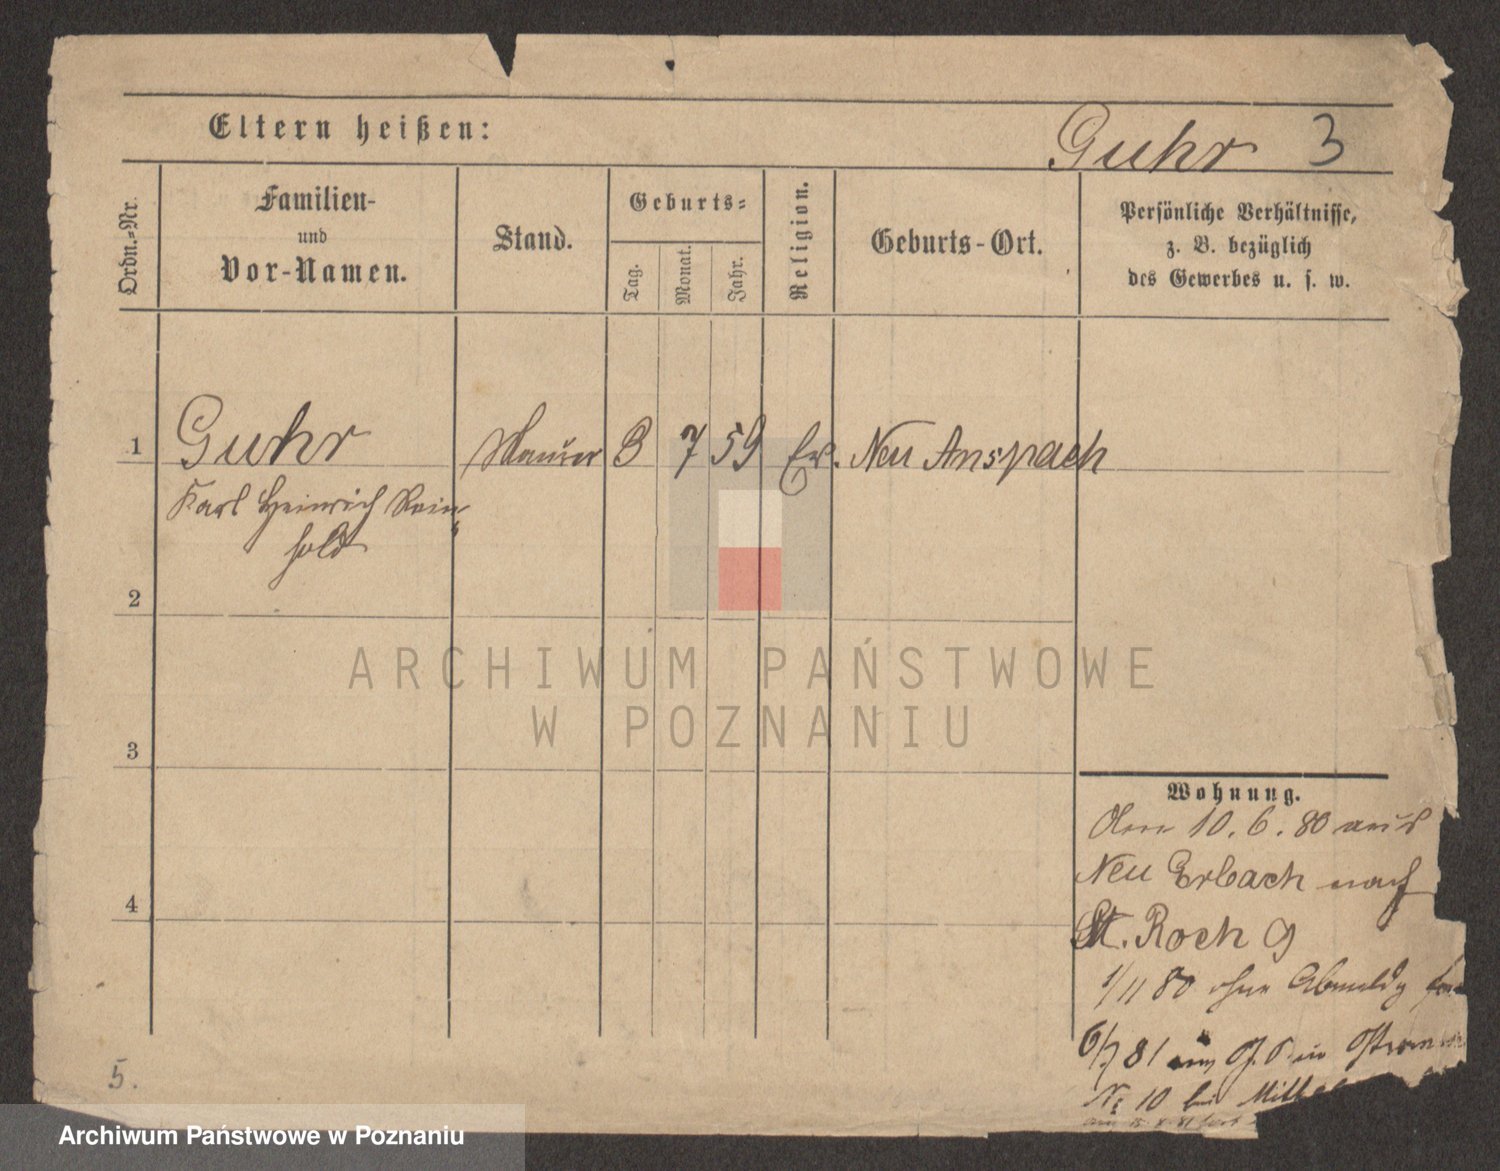 Eltern heißen:
Guhr 3
Ordn.-Nr.
Familien-
und
Vor-Namen.
Stand.
Geburts-
Tag.
Monat.
Jahr.
Religion.
Geburts-Ort.
Persönliche Verhältnisse,
z. B. bezüglich
des Gewerbes u. s. w.
1
Guhr Maurer 3 7 59 Ev. Neu Anspach
Karl Heinrich Rein-
hold
2
ARCHIWUM PAŃSTWOWE
W POZNANIU
3
Wohnung.
10. 6. 80 aus
Neu Erbach nach
4
St. Roch 9
1/11 80 ohne Abmeldg
6/7 81
No 10 bei
5.
Archiwum Państwowe w Poznaniu